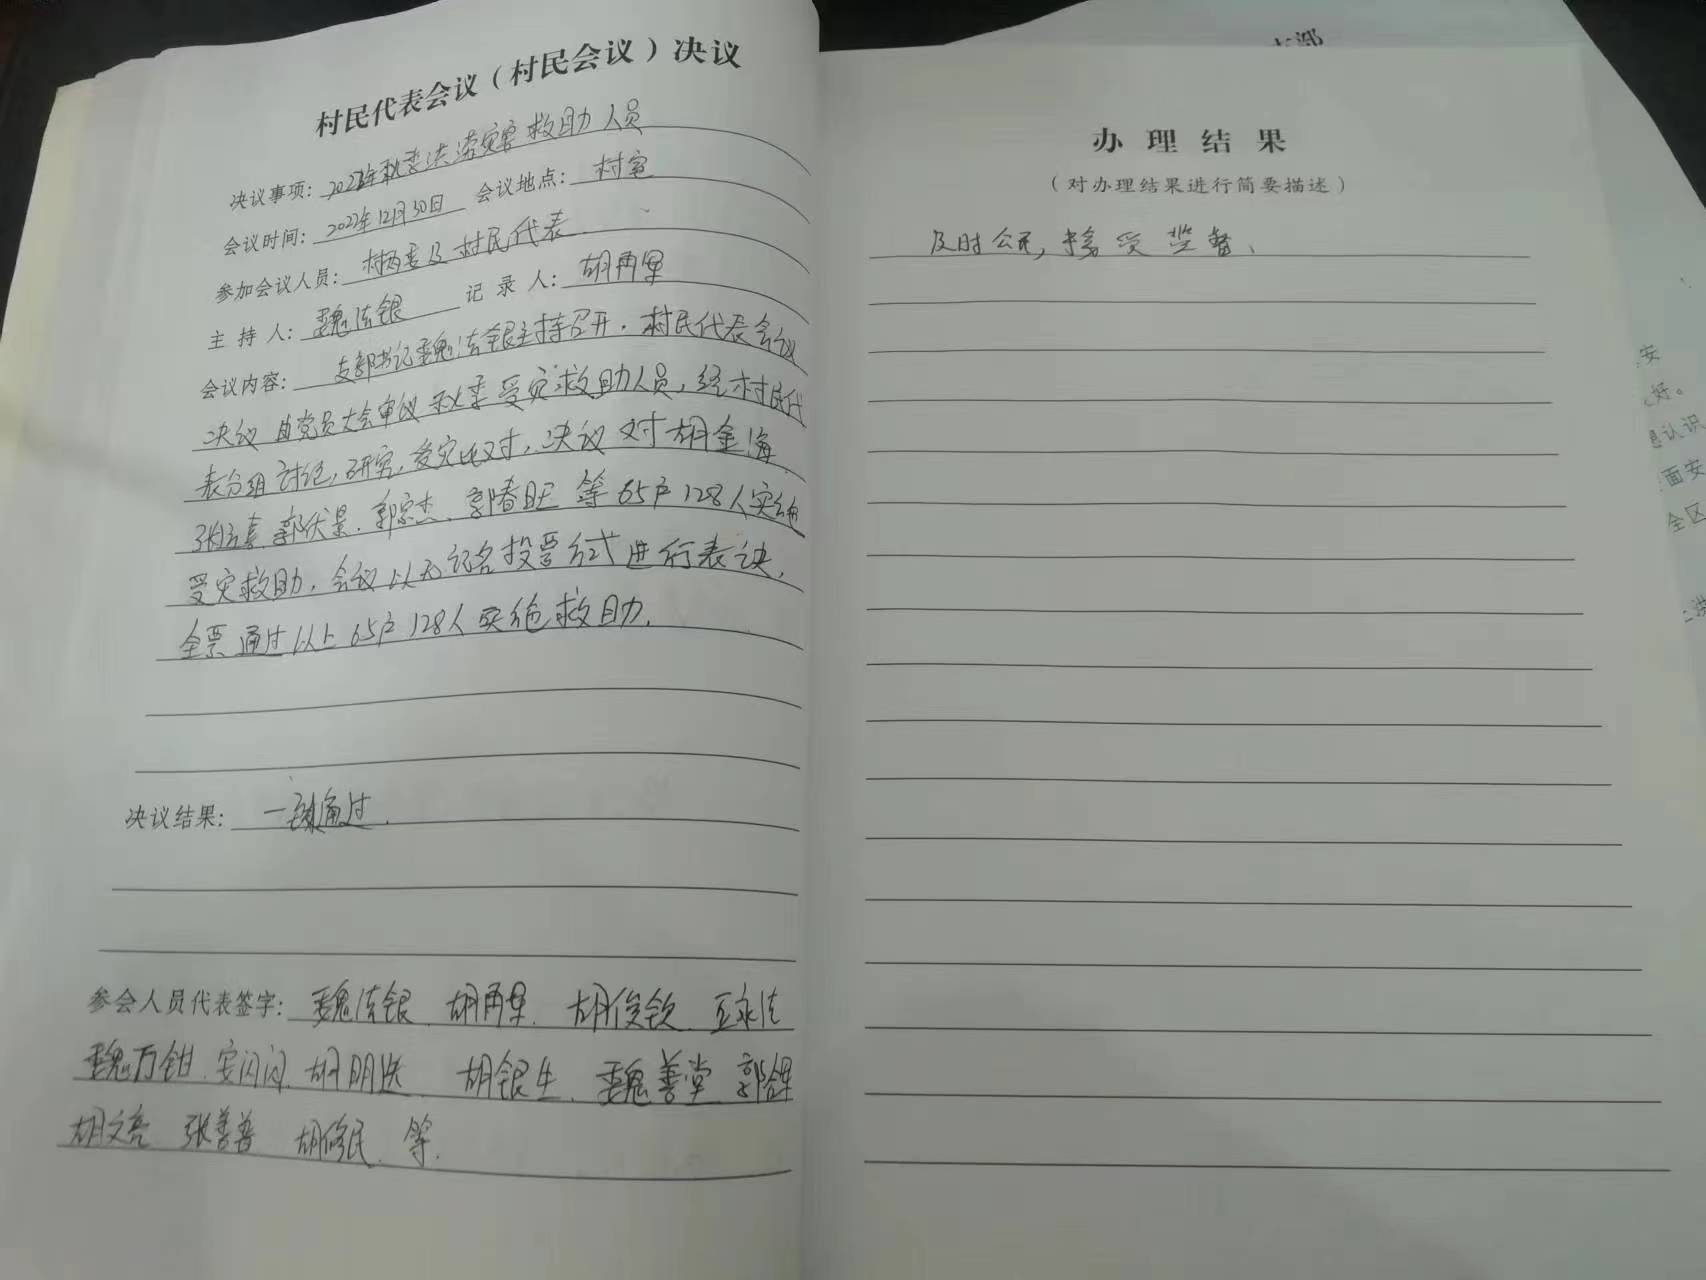 村民代表会议（村民会议）决议
决议事项：2022年秋季洪涝灾害救助人员
会议时间：2022年12月30日 会议地点：村室
参加会议人员：村两委及村民代表
主持人：魏法银 记录人：胡再军
会议内容：支部书记魏法银主持召开，村民代表会议
决议由党员大会审议秋季受灾救助人员，经村民代
表分组讨论，研究，受灾比对，决议对胡金海、
郭庆景、郭宗杰、郭春旺等65户128人实施
受灾救助，会议以无记名投票方式进行表决，
全票通过以上65户128人实施救助。
决议结果：一致通过．
参会人员代表签字：魏法银 胡再军 胡俊钦 王永法
魏万钳 安闪闪 胡明 胡银生 魏善堂 郭
胡文亮 张善普 胡修民 等．
办理结果
（对办理结果进行简要描述）
及时公示，接受监督、
安
好。
认识
面安
全区